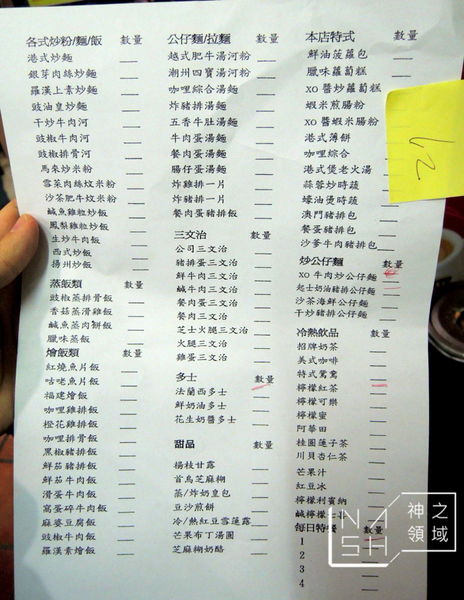 各式炒粉/麵/飯 數量
港式炒麵
銀芽肉絲炒麵
羅漢上素炒麵
豉油皇炒麵
干炒牛肉河
豉椒牛肉河
豉椒排骨河
馬來炒米粉
雪菜肉絲炆米粉
沙茶肥牛炆米粉
鹹魚雞粒炒飯
鳳梨雞粒炒飯
生炒牛肉飯
西式炒飯
揚州炒飯
蒸飯類 數量
豉椒蒸排骨飯
香菇蒸滑雞飯
鹹魚蒸肉餅飯
臘味蒸飯
燴飯類 數量
紅燒魚片飯
咕老魚片飯
福建燴飯
咖哩雞排飯
橙花雞排飯
咖哩排骨飯
黑椒豬排飯
鮮茄豬排飯
鮮茄牛肉飯
滑蛋牛肉飯
窩蛋碎牛肉飯
麻婆豆腐飯
豉椒牛肉飯
羅漢素燴飯
公仔麵/拉麵 數量
越式肥牛湯河粉
潮州四寶湯河粉
咖哩綜合湯麵
炸豬排湯麵
五香牛肚湯麵
牛肉蛋湯麵
餐肉蛋湯麵
腸仔蛋湯麵
炸雞排一片
炸豬排一片
餐肉蛋豬排飯
三文治 數量
公司三文治
豬排蛋三文治
鮮牛肉三文治
鹹牛肉三文治
餐肉蛋三文治
餐肉三文治
芝士火腿三文治
火腿三文治
雞蛋三文治
多士 數量
法蘭西多士
鮮奶油多士
花生奶醬多士
甜品 數量
楊枝甘露
首烏芝麻糊
蒸/炸奶皇包
豆沙煎餅
冷/熱紅豆雪蓮露
芒果布丁湯圓
芝麻糊奶酪
本店特式 數量
鮮油菠蘿包
臘味蘿蔔糕
xo 醬炒蘿蔔糕
蝦米煎腸粉
xo 醬蝦米腸粉
港式薄餅
咖哩綜合
港式煲老火湯
蒜蓉炒時蔬
蠔油燙時蔬
澳門豬排包
餐蛋豬排包
沙爹牛肉豬排包
炒公仔麵 數量
xo 牛肉炒公仔麵
起士奶油豬排公仔麵
沙茶海鮮公仔麵
干炒豬排公仔麵
冷熱飲品 數量
招牌奶茶
美式咖啡
特式鴛鴦
檸檬紅茶
檸檬可樂
檸檬蜜
阿華田
桂圓蓮子茶
川貝杏仁茶
芒果汁
紅豆冰
檸檬利賓納
鹹檸檬七
每日特餐 數量
1
2
3
4
62
NASH 神之領域